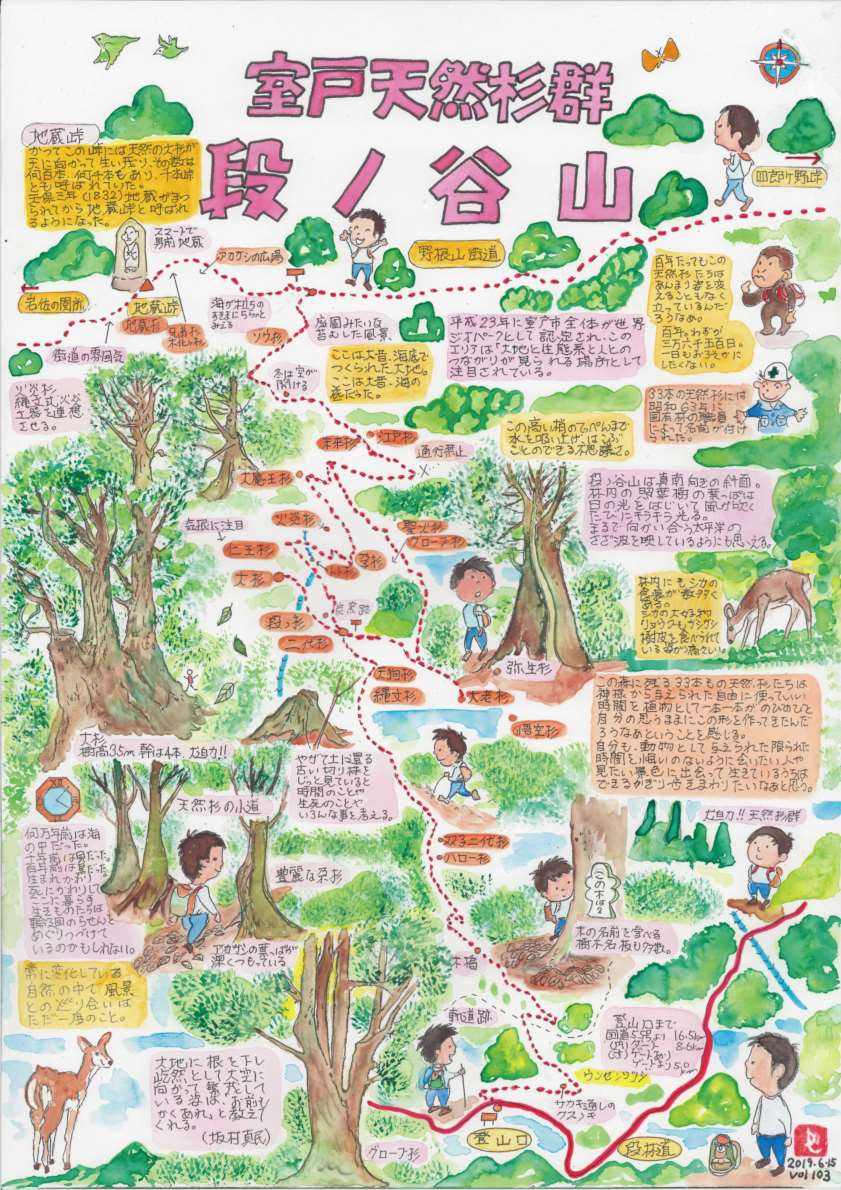 室戸天然杉群
段ノ谷山
地蔵峠
かつてこの峠には天然の大杉が
天に向かって生い茂り、その数は
何百本、何千本もあり、千本峠
とも呼ばれていた。
天保三年(1832)地蔵がまつ
られてから地蔵峠と呼ばれ
るようになった。
四郎ヶ野峠
スマートで
男前地蔵
アカガシの広場
野根山街道
岩佐の関所
地蔵峠
地蔵杉
兄弟杉
海が木立ちの
すきまにちらっと
みえる
ゾウ杉
街道の雰囲気
庭園みたいな
苔むした風景
ここは大昔、海底で
つくられた大地。
ここは大昔、海の
底だった。
平成23年に室戸市全体が世界
ジオパークとして認定され、この
エリアは「大地と生態系と人との
つながりが見られる場所として
注目されている。
百年たってもこの
天然杉たちは
あんまり姿を変
えることもなく
立っているんだ
ろうなぁ。
百年、わずか
三万六千五百日。
一日もおろそかに
したくない。
33本の天然杉には
昭和63年に
によって名前が付け
られた。
火炎杉
縄文式火炎
土器を連想
させる。
冬は空が
開ける
未来杉
江戸杉
通行禁止
この高い梢のてっぺんまで
水を吸い上げ、はこぶ
ことのできる不思議さ。
大魔王杉
段ノ谷山は真南向きの斜面。
林内の照葉樹の葉っぱは
日の光をはじいて風が吹く
たびにキラキラ光る。
まるで向かい合う太平洋の
さざ波を映しているようにも思える。
気根に注目
火炎杉
聖火杉
グローブ杉
仁王杉
大杉
段ノ杉
二代杉
林内にもシカの
食痕が数多く
ある。
シカの大好物
リョウブもガシガシ
樹皮を食べられて
いる姿が痛々しい。
弥生杉
天狗杉
縄文杉
大老杉
悟空杉
この森に残る33本もの天然杉たちは
神様から与えられた自由に使っていい
時間を植物として一本一本がのびのびと
自分の思うままにこの形を作ってきたんだ
ろうなぁということを感じる。
自分も、動物として与えられた限られた
時間を悔いのないように会いたい人や
見たい景色に出会って生きているうちは
大杉
樹高35m 幹は4本、大迫力!!
やがて土に還る
古い切り株を
じっと見ていると
時間のことや
生死のことや
いろんな事を考える。
天然杉の小道
大迫力!!天然杉群
何万年前は海
の中だった。
生まれかわり
死にかわりして
ここに暮らす
生きものたちは
輪廻のらせんを
めぐりつづけて
いるのかもしれない。
双子二代杉
ハロー杉
豊麗な朶杉
この木は?
木の名前を学べる
樹木名板も多数。
アカガシの葉っぱが
深くつもっている
木橋
常に変化している
自然の中で風景
との巡り合いは
ただ一度のこと。
軌道跡
登山口まで
国道55号より 16.5km
ウンゼンツツジ
大地に根を下し
屹然として大空に
向かって繁茂して
いる姿は、お前も
かくあれ、と教えて
くれる。
(坂村真民)
サカキ通しの
クスノキ
グローブ杉
登山口
段林道
2019.6.15
vol 103